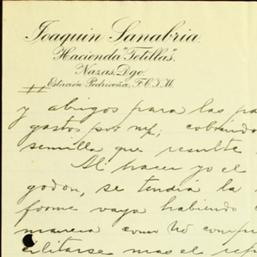 Joaquin Sanabria
Hacienda "Tetillas".
Nazas, Dgo.
Estación Pedriceña, F.C.I.M.
y abigos para las pa
gastos por mf; cobrando
semilla que resulte
Al hacer yo el
godon, se tendra la
forme vaya habiendo
manera como No comp
cilitarse mas el rep